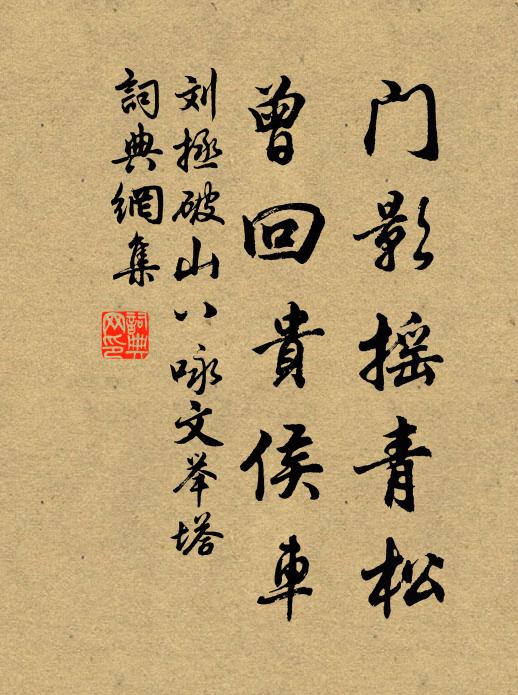 门影摇青松
曾回貴侯車
刘拯破山八咏文举塔
詞典網集
詞典网印